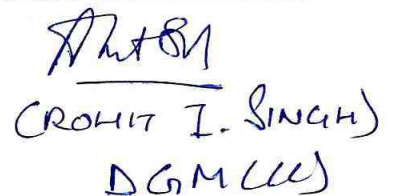 (ROHIT I. SINGH)
DGM